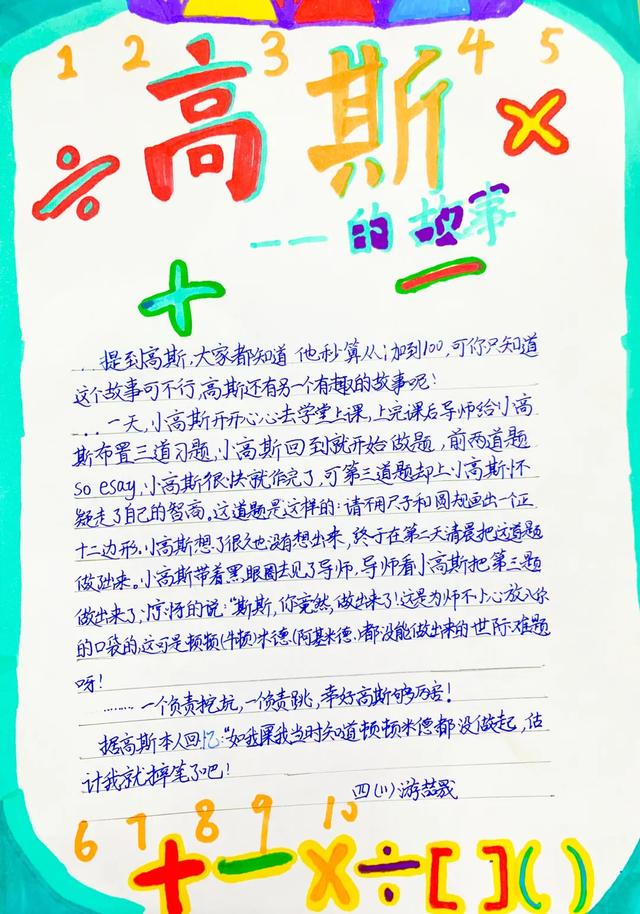 1 2 3 4 5
÷ 高斯 ×
——的故事
+ −
...提到高斯,大家都知道他秒算从1加到100,可你只知道
这个故事可不行,高斯还有另一个有趣的故事呢!
...一天,小高斯开开心心去学堂上课,上完课后导师给小高
斯布置三道习题,小高斯回到就开始做题,前两道题
so esay,小高斯很快就作完了,可第三道题却上小高斯怀
疑走了自己的智商。这道题是这样的:请不用尺子和圆规画出一个正
十二边形.小高斯想了很久也没有想出来,终于在第二天清晨把这道题
做出来。小高斯带着黑眼圈去见了导师,导师看小高斯把第三题
做出来了,惊讶的说:“斯斯,你竟然,做出来了!这是为师不小心放入你
的口袋的,这可是顿顿(牛顿)米德(阿基米德)都没能做出来的世际难题
呀!
………一个负责挖坑,一个负责跳,幸好高斯够厉害!
据高斯本人回忆:“如我果我当时知道顿顿米德都没做起,估
计我就摔笔了吧!
四(1)游喆晟
6 7 8 9 10
+ − × ÷ [ ] ( )